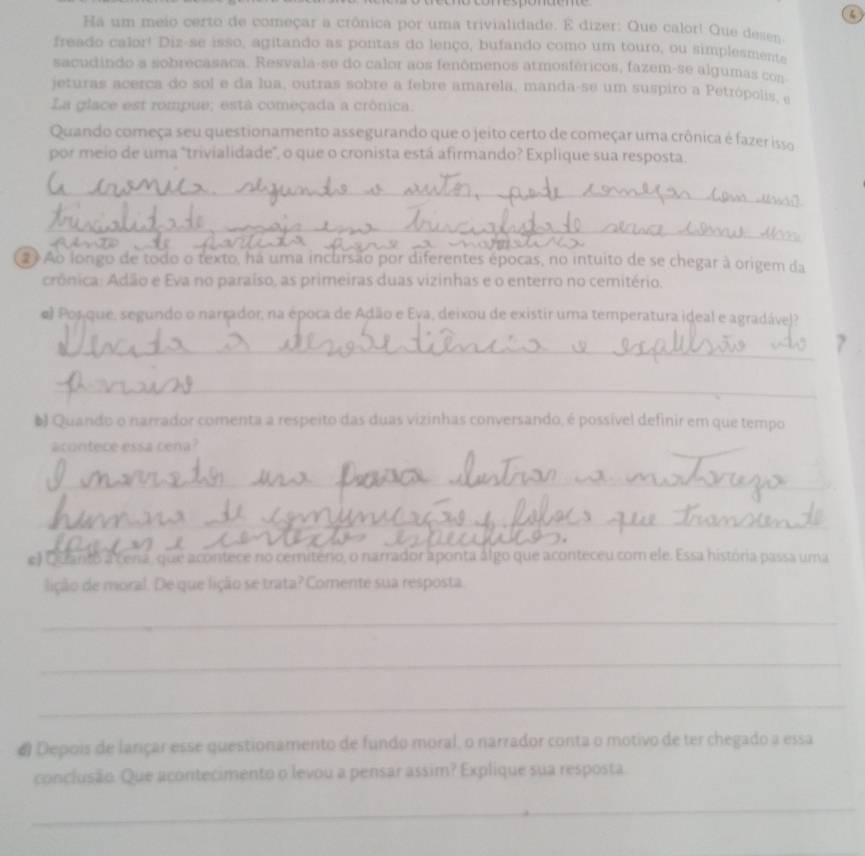 Há um meio certo de começar a crônica por uma trivialidade. É dizer: Que calor! Que desen-
freado calor! Diz-se isso, agitando as pontas do lenço, bufando como um touro, ou simplesmente
sacudindo a sobrecasaca. Resvala-se do calor aos fenômenos atmosféricos, fazem-se algumas con-
jeturas acerca do sol e da lua, outras sobre a febre amarela, manda-se um suspiro a Petrópolis, e
La glace est rompue; está começada a crônica.
Quando começa seu questionamento assegurando que o jeito certo de começar uma crônica é fazer isso
por meio de uma "trivialidade", o que o cronista está afirmando? Explique sua resposta.
A cronica segundo o autor, pode começar com uma
trivialidade, mais essa trivialidade serve como um
ponto de partida para a narrativa
2 Ao longo de todo o texto, há uma incursão por diferentes épocas, no intuito de se chegar à origem da
crônica: Adão e Eva no paraíso, as primeiras duas vizinhas e o enterro no cemitério.
a) Por que, segundo o narrador, na época de Adão e Eva, deixou de existir uma temperatura ideal e agradável?
Devido a desobediência e expulsão do
paraiso
b) Quando o narrador comenta a respeito das duas vizinhas conversando, é possível definir em que tempo
acontece essa cena?
O narrador usa para ilustrar a natureza
humana de comunicação e fofoca que transcende
épocas e contextos especificos.
c) Quanto à cena, que acontece no cemitério, o narrador aponta algo que aconteceu com ele. Essa história passa uma
lição de moral. De que lição se trata? Comente sua resposta.
d) Depois de lançar esse questionamento de fundo moral, o narrador conta o motivo de ter chegado a essa
conclusão. Que acontecimento o levou a pensar assim? Explique sua resposta.